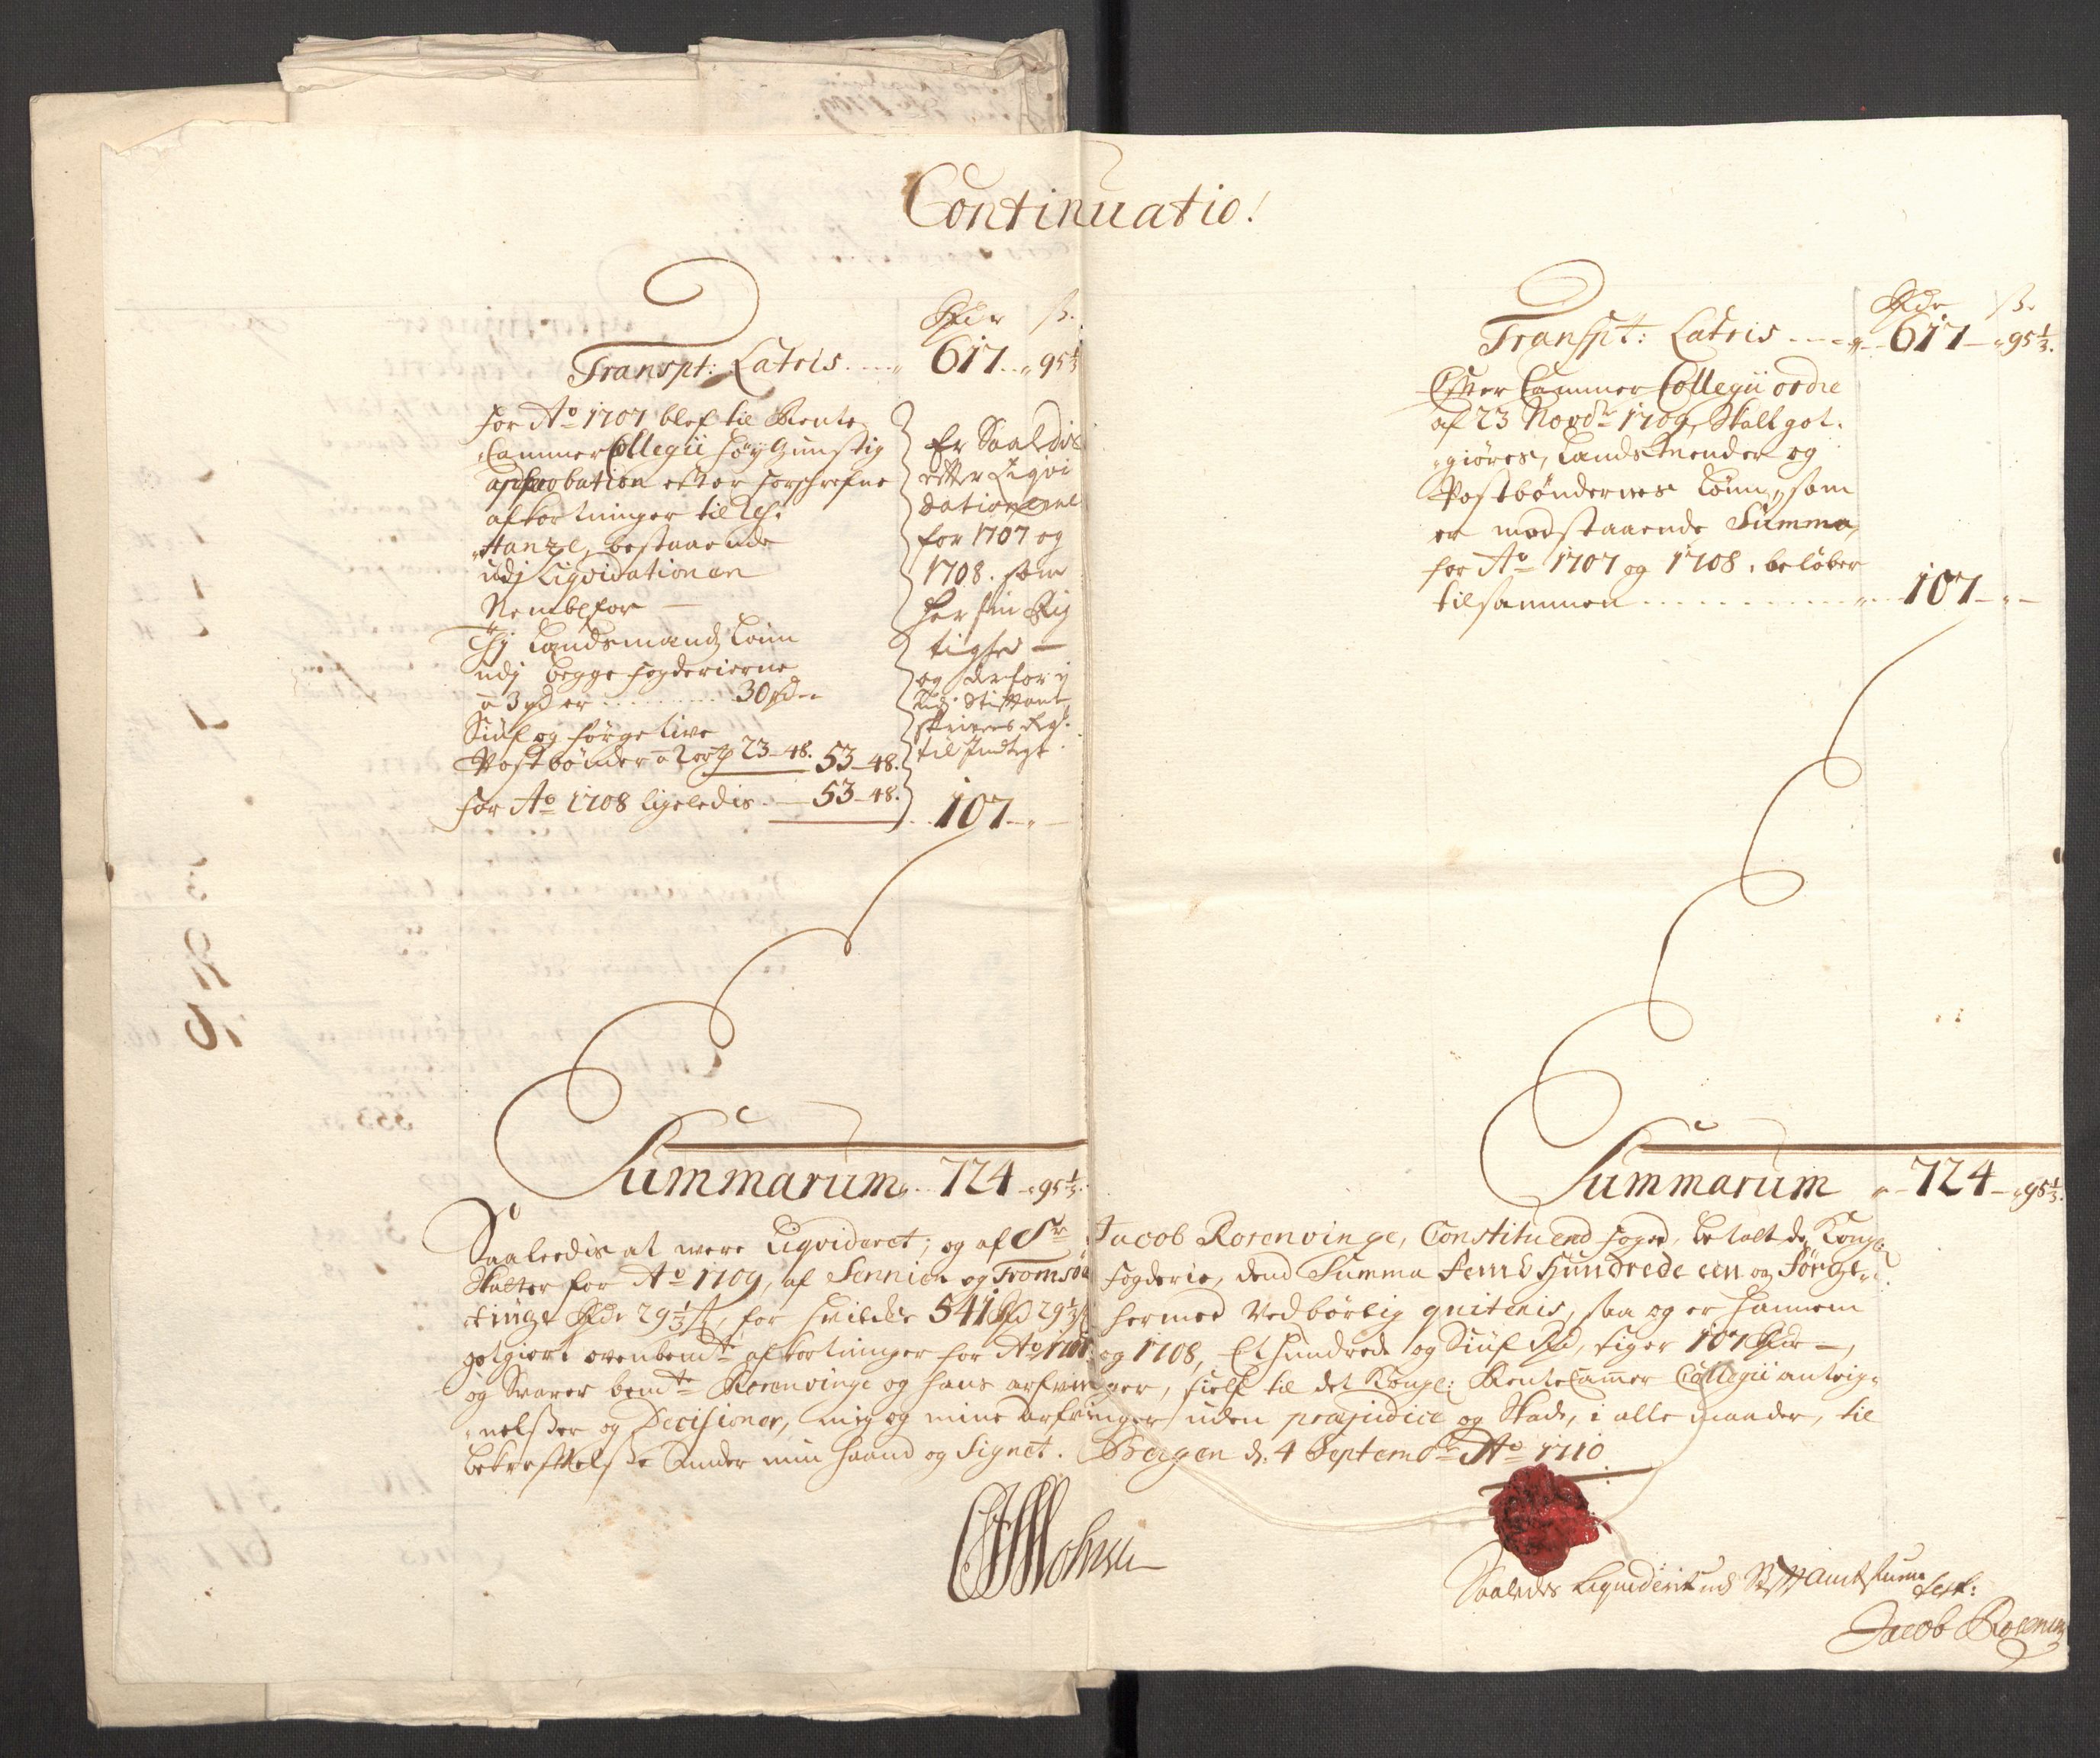 Continuatio!
Rdr ß.
Transpt: Latris 617 95⅓
for Ao 1707 blef til Rente
Cammer Collegii høygunstig
approbation efter forschrefne
afkortninger til
bestaaende
udj Liqvidationen
Nemblefor —
Thj Landsmænd Lønn
udj begge fogderierne
a 3 rd er 30 rd
Siuf og førgetive
Postbønder a 2 ort 23-48. 53-48.
for Ao 1708 ligeledis 53-48.
Er Saaledis
efter Liqvi
dationerne
for 1707 og
1708. som
her sin Rig
tighed —
og derfor i
Stiftamt
skrivers Regsk.
til Indtegt.
107
Summarum 724 95⅓.
Rdr ß.
Transpt: Latris 617 95⅓.
Efter Cammer Collegii ordre
af 23 Novbr 1709, Skall got-
giøres, Landsmænder og
Postbøndernes Lønn, som
er modstaaende Summa,
for Ao 1707 og 1708, beløber
tilsammen 107
Summarum 724 95⅓.
Saaledis at were Liqvideret; og af Sr Jacob Rosenvinge, Constituerd foged, betalt de Kongl:
Skatter for Ao 1709, af Sennien og Tromsøe fogderie, dend Summa Femb Hundrede een og Førge-
tiuge Rdr 29⅓ ß, for hvilcke 541 Rd 29⅓ ß hermed Vedbørlig qviteris, saa og er hannem
gotgiort ovenbemte afkortninger for Ao 1707 og 1708, Et hundrede og Siuf Rd, siger 107 Rdr —,
og Svarer bemte Rosenvinge og hans arfvinger, sielf til det Kongl: Rente Cammer Collegii anteig-
nelßer og Decisioner, mig og mine Arfvinger uden præjudice og Skade, i alle maader, til
bekreftelße Under min haand og Signet. Bergen d. 4 Septembr Ao 1710
Saaledes Liqvideret ved Stiftamtstuen
Jacob Rosenvin